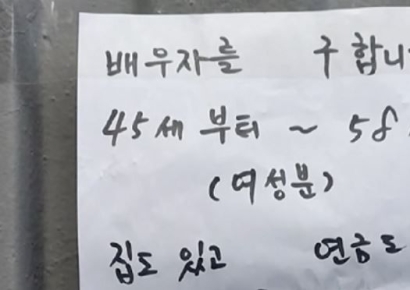 배우자를 구합니
45세 부터 ~ 58
(여성분)
집도 있고 연금도